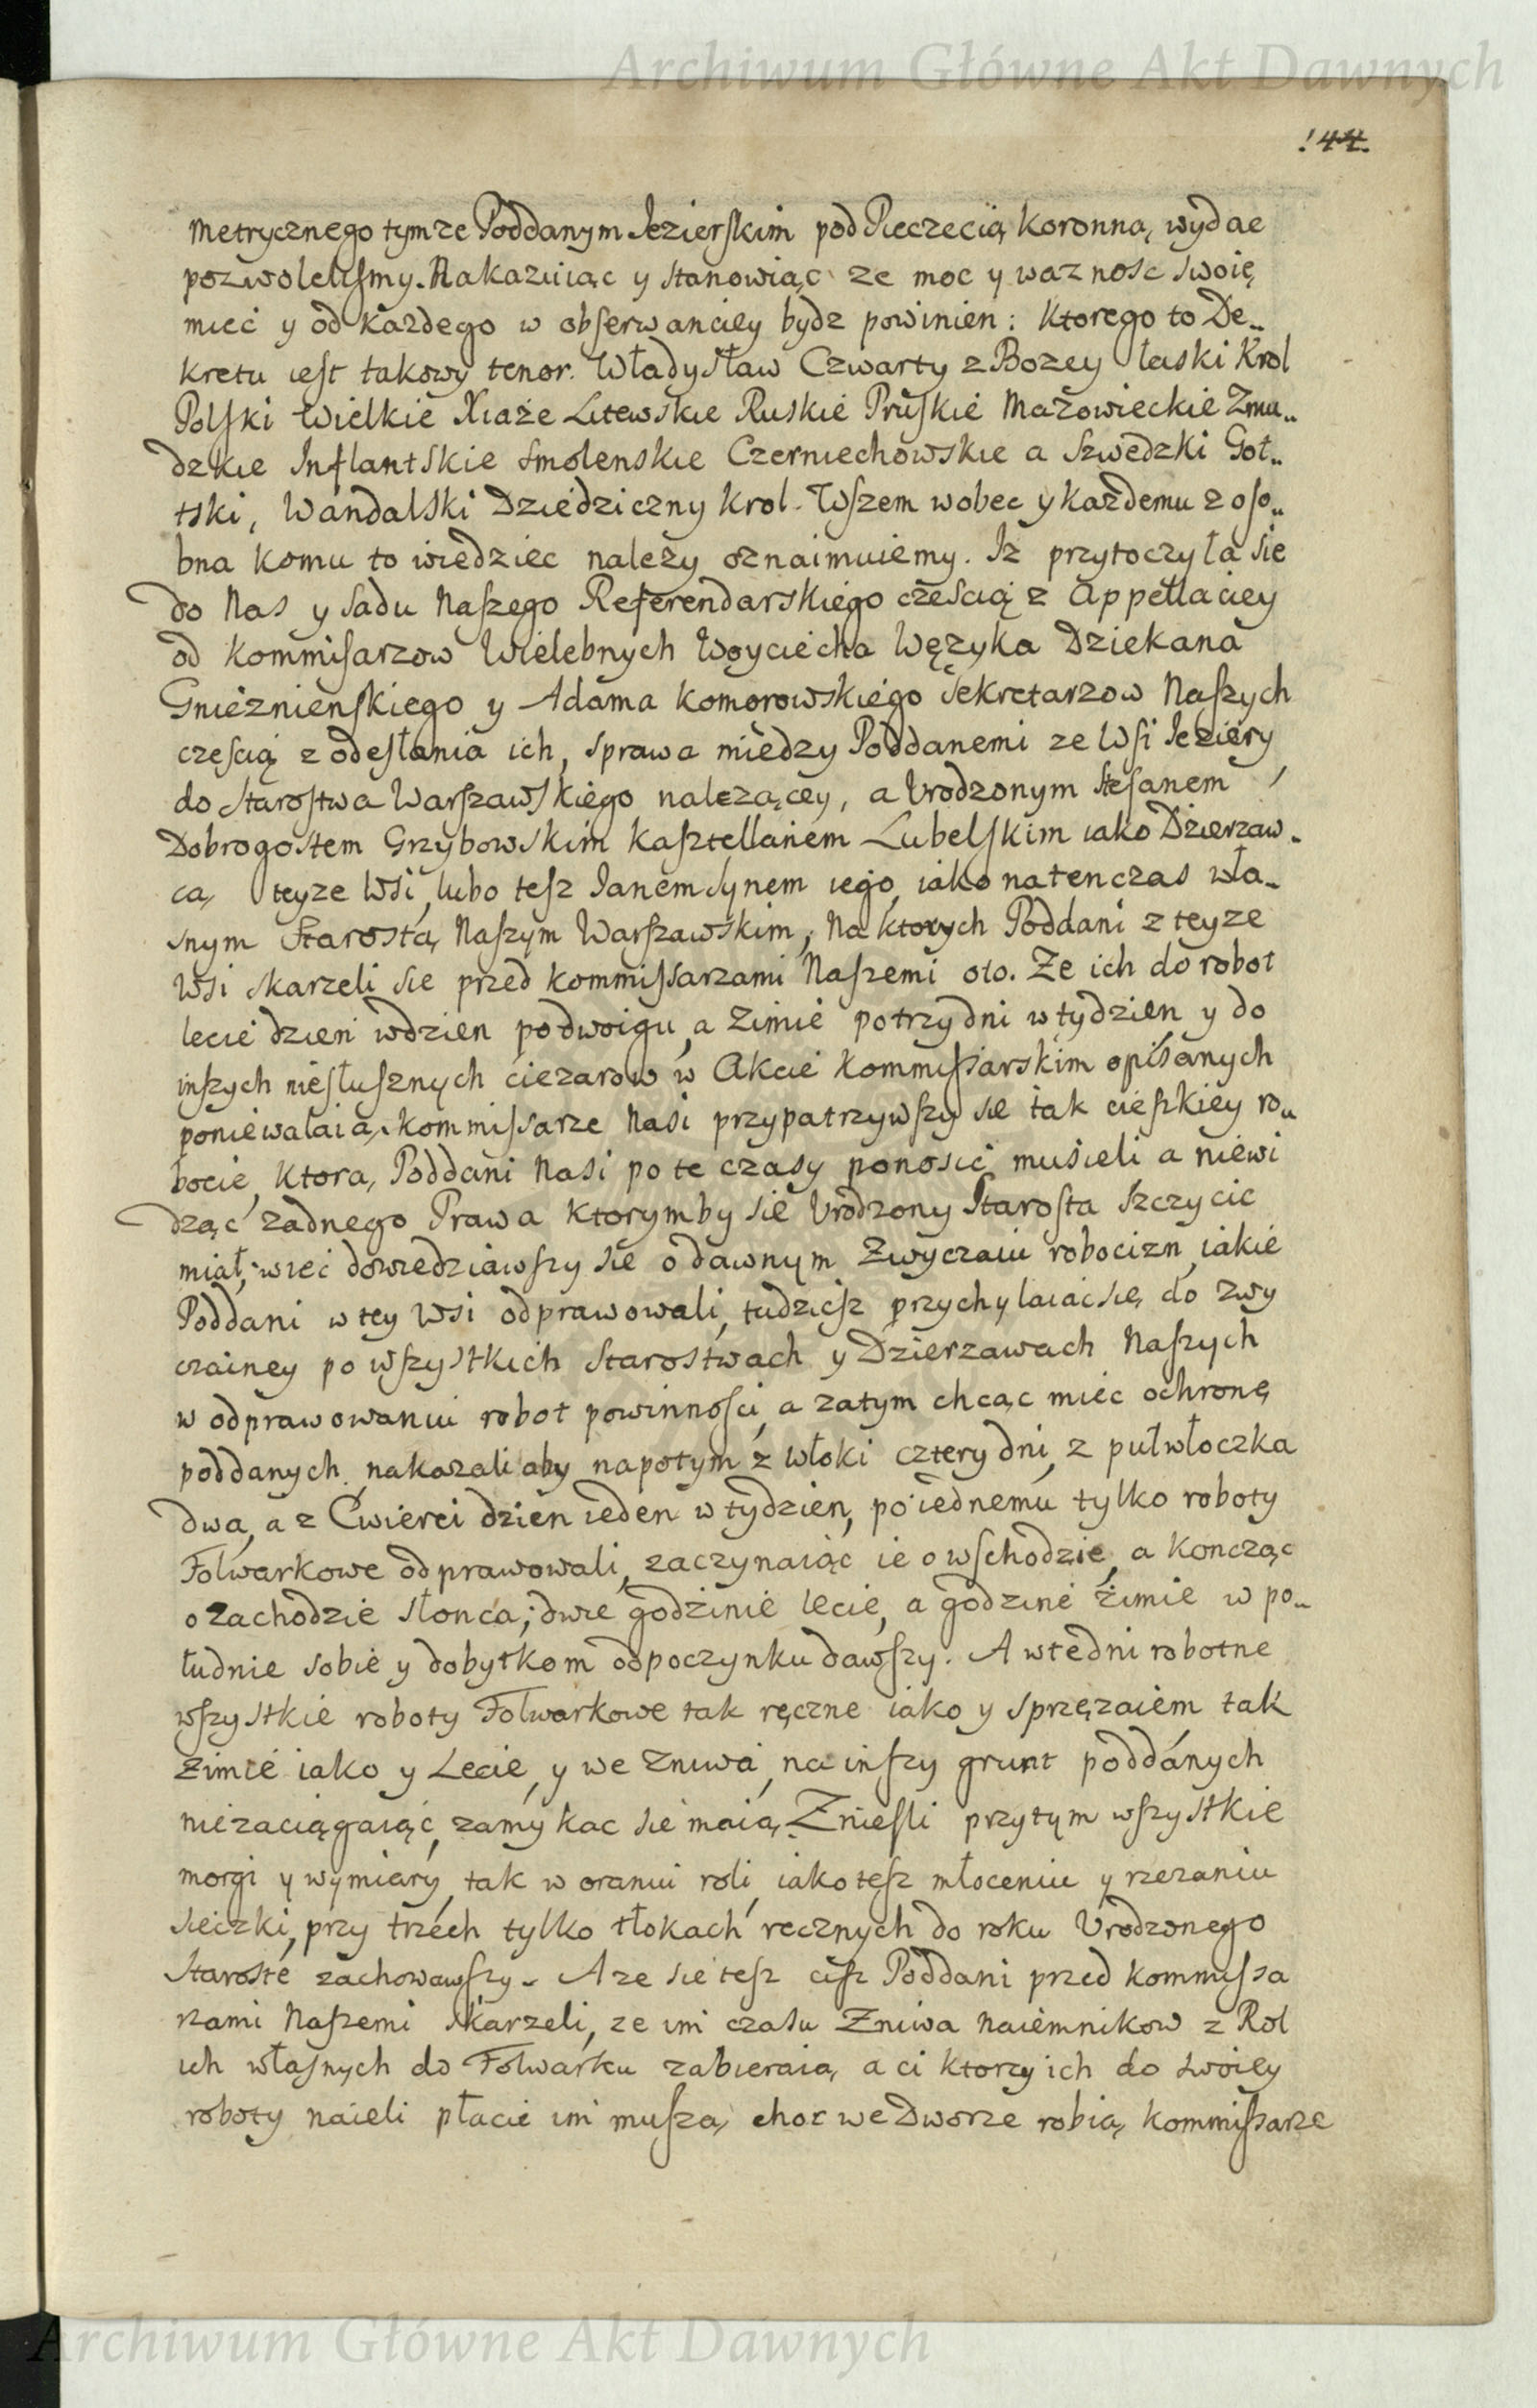 Archiwum Główne Akt Dawnych
144.
metrycznego tymze Poddanym Jezierskim pod Pieczecią Koronną, wydac
pozwolelismy. Nakazuiąc y stanowiąc ze moc y waznosc swoię
miec y od kazdego w obserwanciey bydz powinien: Ktorego to De„
kretu iest takowy tenor. Władysław Czwarty z Bozey łaski Krol
Polski Wielkie Xiaże Litewskie Ruskie Pruskie Mazowieckie Zmu„
dzkie Inflantskie Smolenskie Czerniechowskie a Szwedzki Got„
tski, Wandalski Dziedziczny Krol. Wszem wobec y kazdemu z oso„
bna komu to wiedziec nalezy oznaimuiemy. Iz przytoczyła sie
do Nas y Sadu Naszego Referendarskiego czescią z Appellaciey
od Kommisarzow Wielebnych Woyciecha Węzyka Dziekana
Gnieznienskiego y Adama Komorowskiego Sekretarzow Naszych
czescią z odesłania ich, sprawa miedzy Poddanemi ze Wsi Jeziery
do Starostwa Warszawskiego nalezącey, a Urodzonym Stefanem
Dobrogostem Grzybowskim Kasztellanem Lubelskim iako Dzierzaw„
cą, teyze Wsi, lubo tesz Janem Synem iego, iako natenczas wła„
snym Starostą Naszym Warszawskim, Na ktorych Poddani z teyze
Wsi skarzeli sie przed Kommissarzami Naszemi oto. Ze ich do robot
lecie dzien wdzien po dwoigu, a Zimie po trzy dni w tydzien, y do
inszych niesłusznych ciezarow w Akcie Kommissarskim opisanych
poniewalaią, Kommissarze Nasi przypatrzywszy sie tak cieszkiey ro„
bocie, ktorą, Poddani Nasi po te czasy ponosic musieli a niewi
dząc zadnego Prawa ktorymby sie Urodzony Starosta szczycic
miał, wiec dowiedziawszy sie o dawnym Zwyczaiu robocizn, iakie
Poddani w tey Wsi odprawowali, tudziesz przychylaiac się, do zwy
czainey po wszystkich Starostwach y Dzierzawach Naszych
w odprawowaniu robot powinnosci, a zatym chcąc miec ochronę
poddanych, nakazali aby napotym z włoki cztery dni, z pułwłoczka
dwa, a z Cwierci dzien ieden w tydzien, po iednemu tylko roboty
Folwarkowe odprawowali, zaczynaiąc ie o wschodzie, a koncząc
o zachodzie słonca; dwie godzinie lecie, a godzine zimie w po„
łudnie sobie y dobytkom odpoczynku dawszy. A w te dni robotne
wszystkie roboty Folwarkowe tak ręczne iako y sprzęzaiem tak
zimie iako y Lecie, y we Zniwa, na inszy grunt poddanych
niezaciągaiąc, zamykac sie maią, Zniesli przytym wszystkie
morgi y wymiary, tak w oraniu roli, iako tesz młoceniu y rzezaniu
sieczki, przy trzech tylko tłokach recznych do roku Urodzonego
Staroste zachowawszy. A ze sie tesz cisz Poddani przed Kommissa
rzami Naszemi skarzeli, ze im czasu Zniwa Naiemnikow z Rol
ich własnych do Folwarku zabieraią, a ci ktorzy ich do swoiey
roboty naieli płacic im muszą, choc we Dworze robią, Kommissarze
Archiwum Główne Akt Dawnych